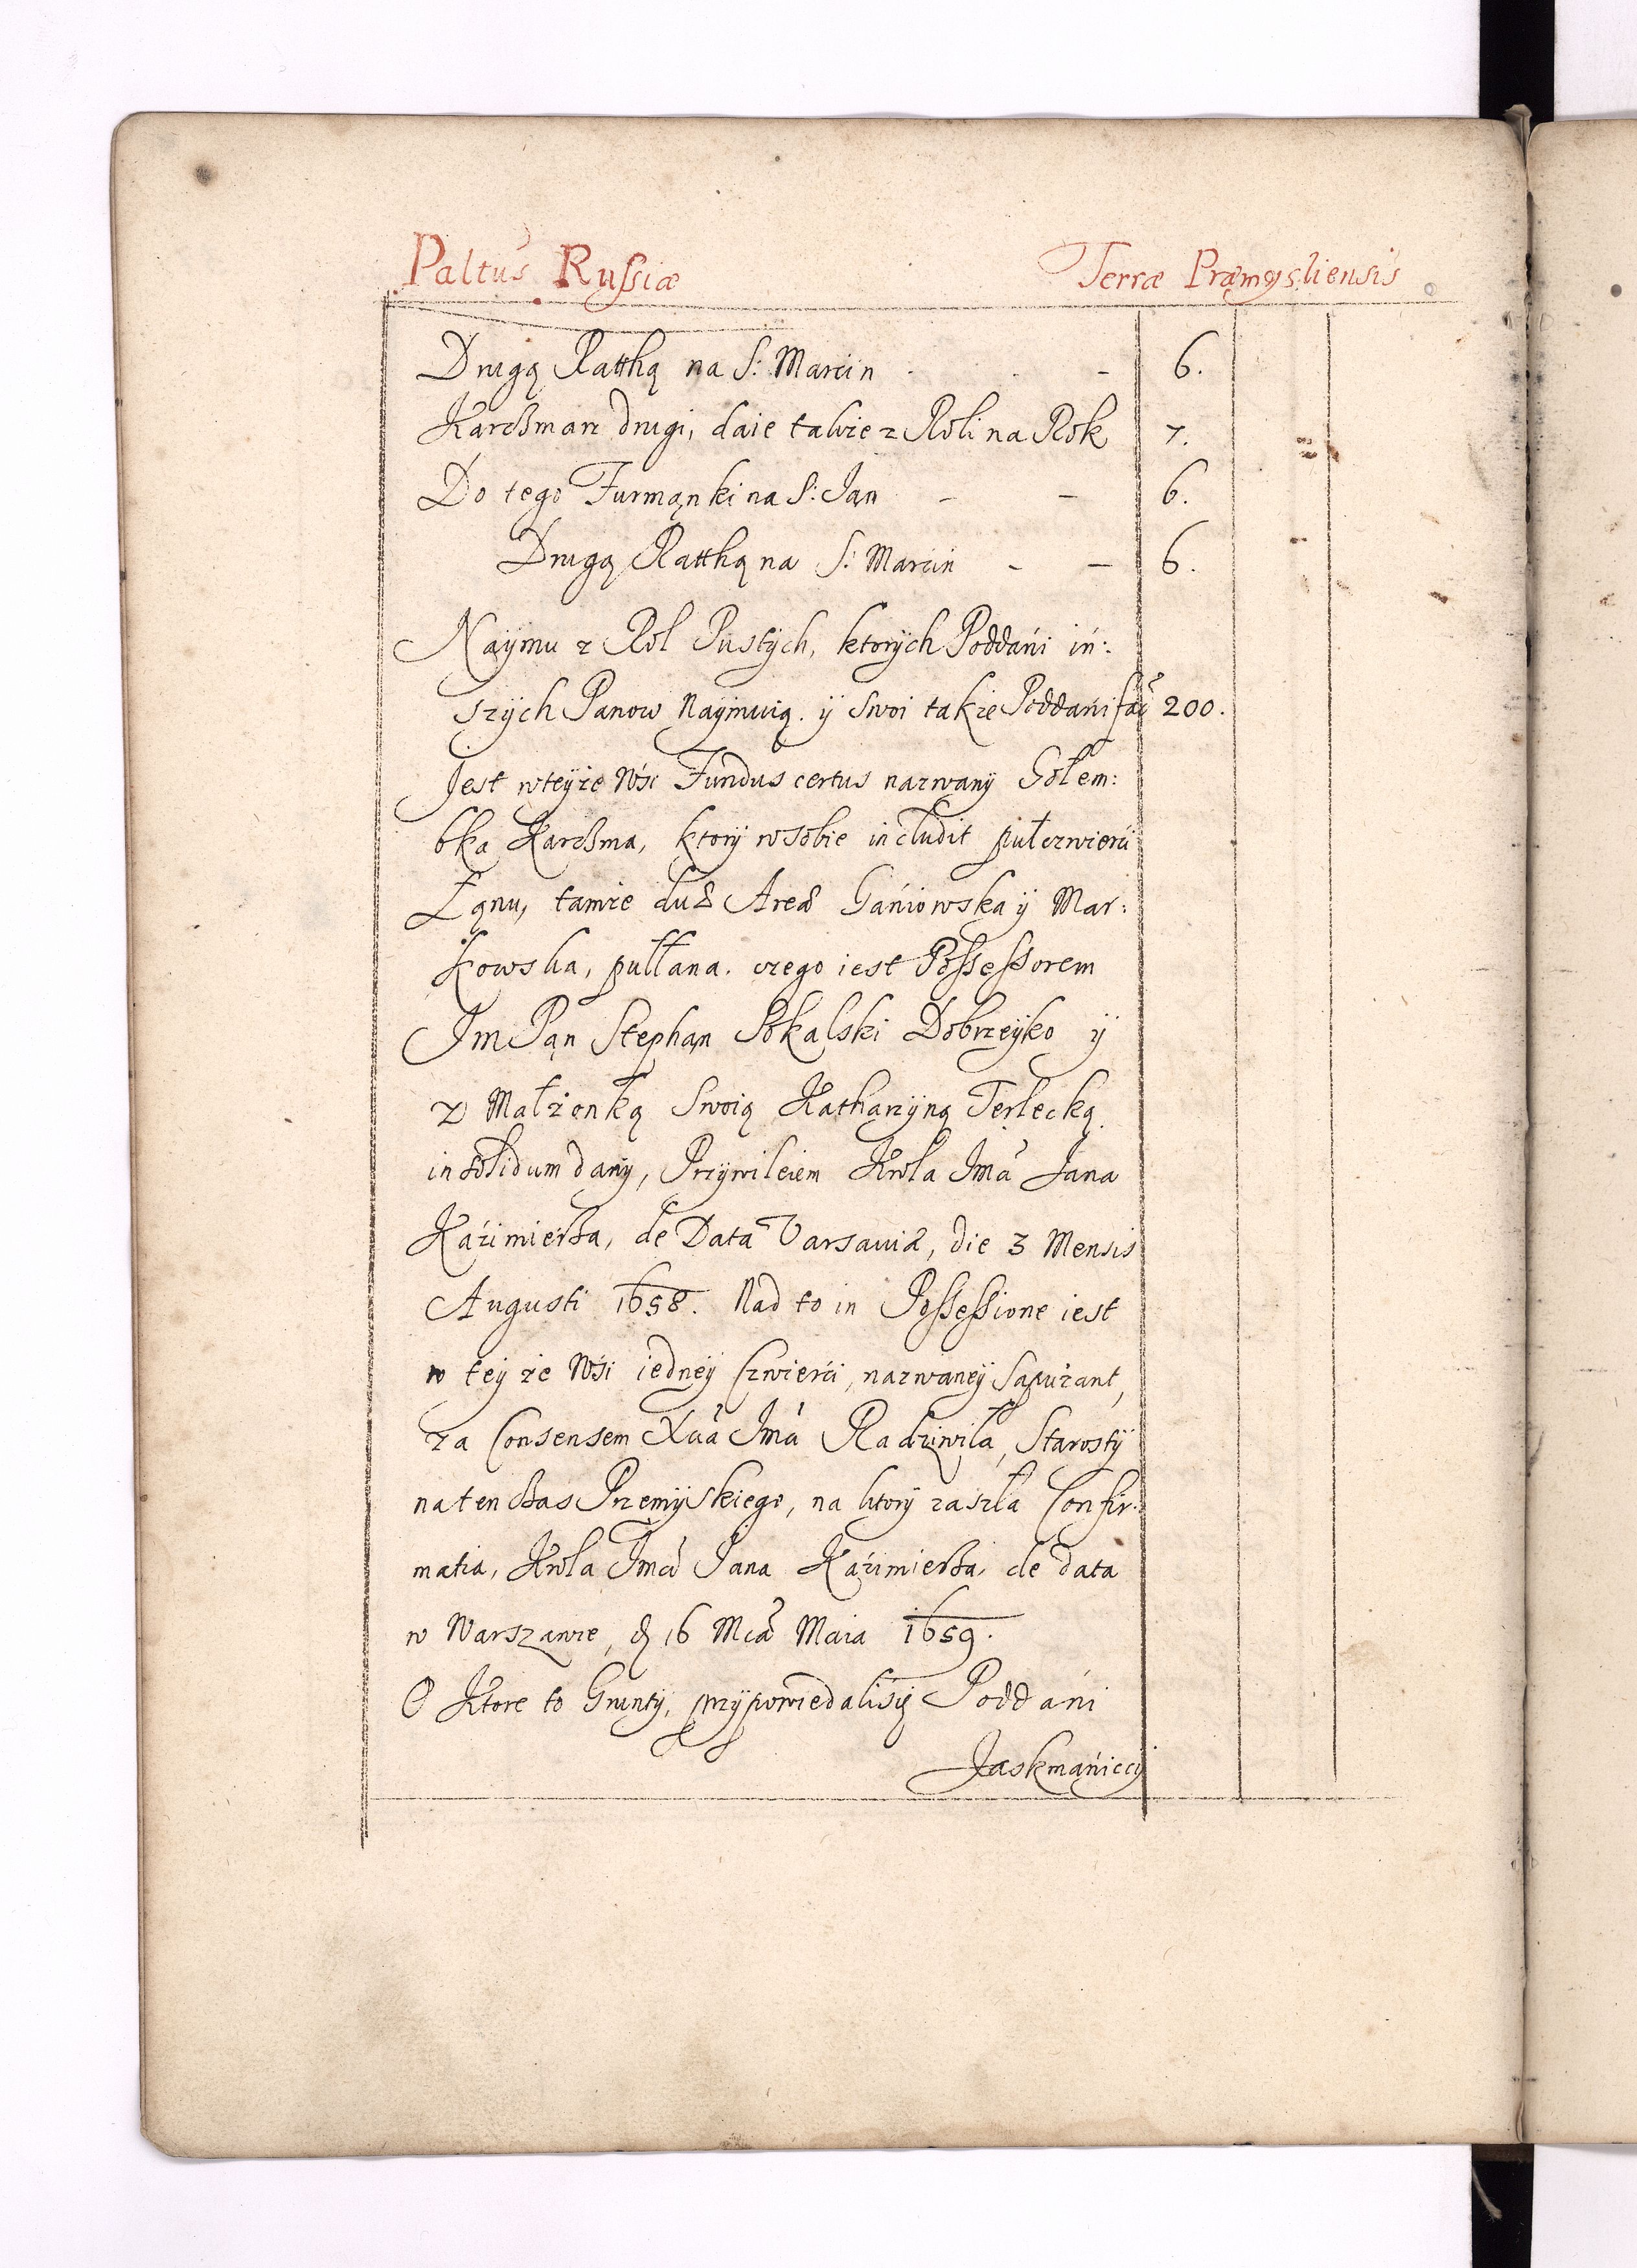 Paltus Rußiæ Terræ Præmysliensis
Drugą Ratthą na S: Marcin - - 6.
Karcżmarz drugi, daie takze z Roli na Rok 7.
Do tego Furmąnki na S: Ján - - 6.
Drugą Ratthą na S: Marcin - - 6.
Naÿmu z Rol Pustÿch, ktorÿch Poddáni in:
szych Panow Naÿmuią. ÿ swoi takze Poddáni 200.
Jest wteÿze Wśi Fundus certus nazwanÿ Gołem:
bka Karcżma, ktorÿ wsobie includit puł czwierci
Łąnu, tamze duæ Areæ Gániowska ÿ Mar:
kowska, pułłana. czego iest Poßeßorem
Jm Pąn Stephąn Sokalski Dobrzeÿko ÿ
z Małzonką Swoią Katharzÿną Terlecką
in solidum danÿ, Przÿwileiem Krola Jmci Jana
Kaźimierza, de Data Varsaviæ, die 3 Mensis
Augusti 1658. Nad to in Poßeßione iest
w teÿ ze Wśi iedneÿ Czwierci, nazwaneÿ Sapuzant,
za Consensem Xcia Jmci Radziwiła, Starostÿ
naten czas Przemÿskiego, na ktorÿ zaszła Confir:
matia, Krola Jmci Jana Kaźimierza, de data
w Warszawie, d 16 Mca Maia 1659.
O Ktore to Gruntÿ, przÿpowiedalisię Poddáni
Jaskmániccÿ